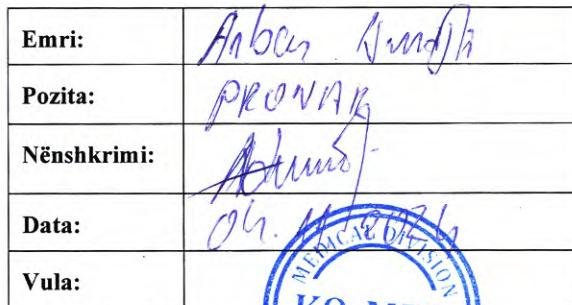 Emri: Arban
Pozita: PRONAR
Nënshkrimi:
Data: 04.11.2024
Vula:
MEDICAL DIVISION